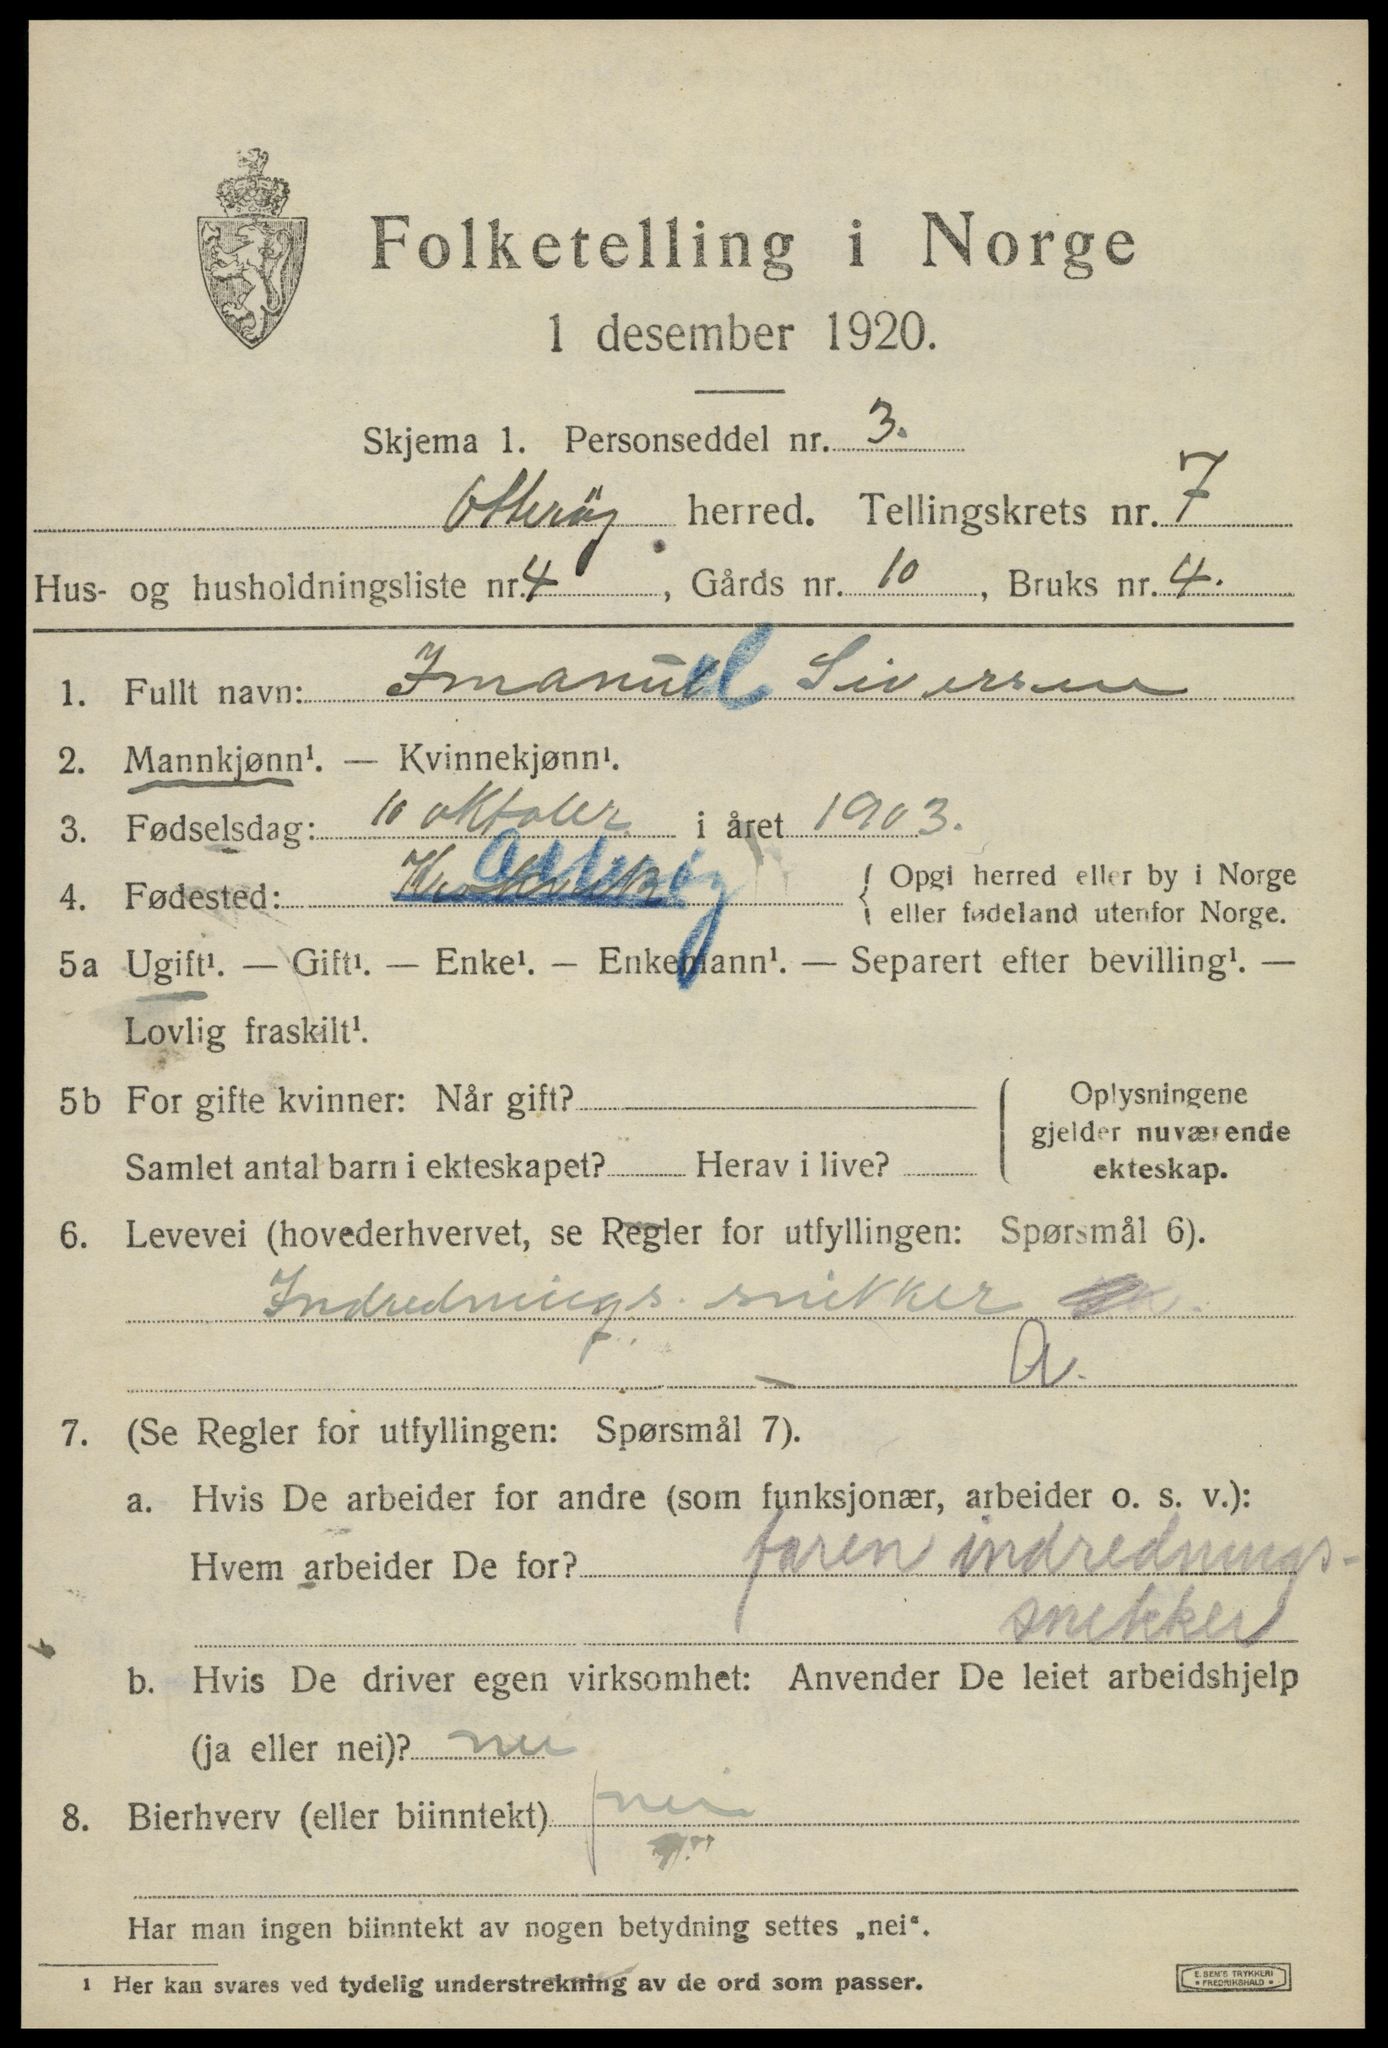 Folketelling i Norge
1 desember 1920.
Skjema 1. Personseddel nr. 3.
Otterøy herred. Tellingskrets nr. 7
Hus- og husholdningsliste nr. 4, Gårds nr. 10, Bruks nr. 4.
1. Fullt navn: Imanuel Siversen
2. Mannkjønn¹. — Kvinnekjønn¹.
3. Fødselsdag: 10 oktober i året 1903.
4. Fødested: Otterøy { Opgi herred eller by i Norge
eller fødeland utenfor Norge.
5a Ugift¹. — Gift¹. — Enke¹. — Enkemann¹. — Separert efter bevilling¹. —
Lovlig fraskilt¹.
5b For gifte kvinner: Når gift? { Oplysningene
gjelder nuværende
Samlet antal barn i ekteskapet? Herav i live? ekteskap.
6. Levevei (hovederhvervet, se Regler for utfyllingen: Spørsmål 6).
Indrednings snikker
A.
7. (Se Regler for utfyllingen: Spørsmål 7).
a. Hvis De arbeider for andre (som funksjonær, arbeider o. s. v.):
Hvem arbeider De for? faren indrednings-
snekker
b. Hvis De driver egen virksomhet: Anvender De leiet arbeidshjelp
(ja eller nei)? nei
8. Bierhverv (eller biinntekt) nei
Har man ingen biinntekt av nogen betydning settes „nei“.
¹ Her kan svares ved tydelig understrekning av de ord som passer.
E. SEM'S TRYKKERI
* FREDRIKSHALD *